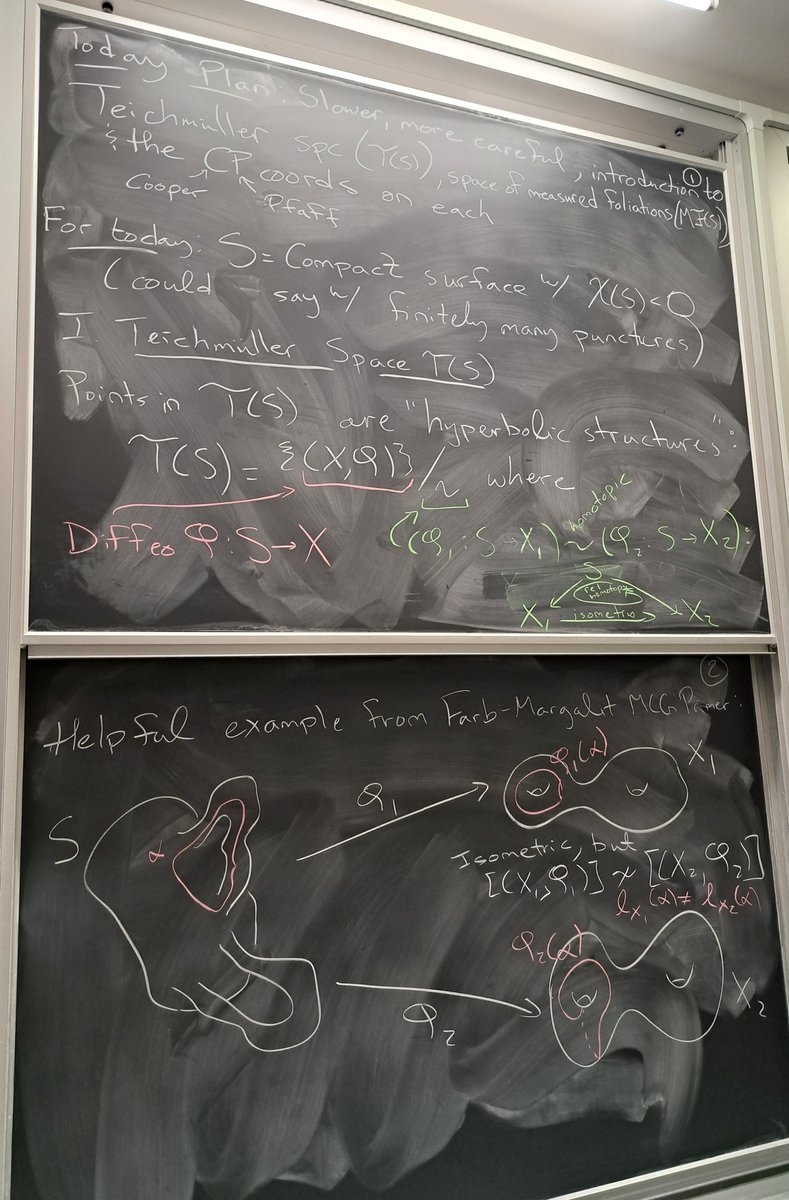 Today Plan: Slower, more careful, introduction to ①
Teichmüller spc (T(S)), space of measured foliations (MF(S))
& the CP coords on each
Cooper Pfaff
For today: S = Compact surface w/ χ(S)<0
(could say w/ finitely many punctures)
I. Teichmüller Space T(S)
Points in T(S) are "hyperbolic structures":
T(S) = {(X,φ)}/~ where
Diffeo φ: S→X
homotopic
(φ₁: S→X₁) ~ (φ₂: S→X₂):
S
X₁ isometric X₂
②
Helpful example from Farb-Margalit MCG Primer:
S
α
φ₁
φ₁(α)
X₁
Isometric, but
[(X₁,φ₁)] ≁ [(X₂,φ₂)]
l_X₁(α) ≠ l_X₂(α)
φ₂
φ₂(α)
X₂